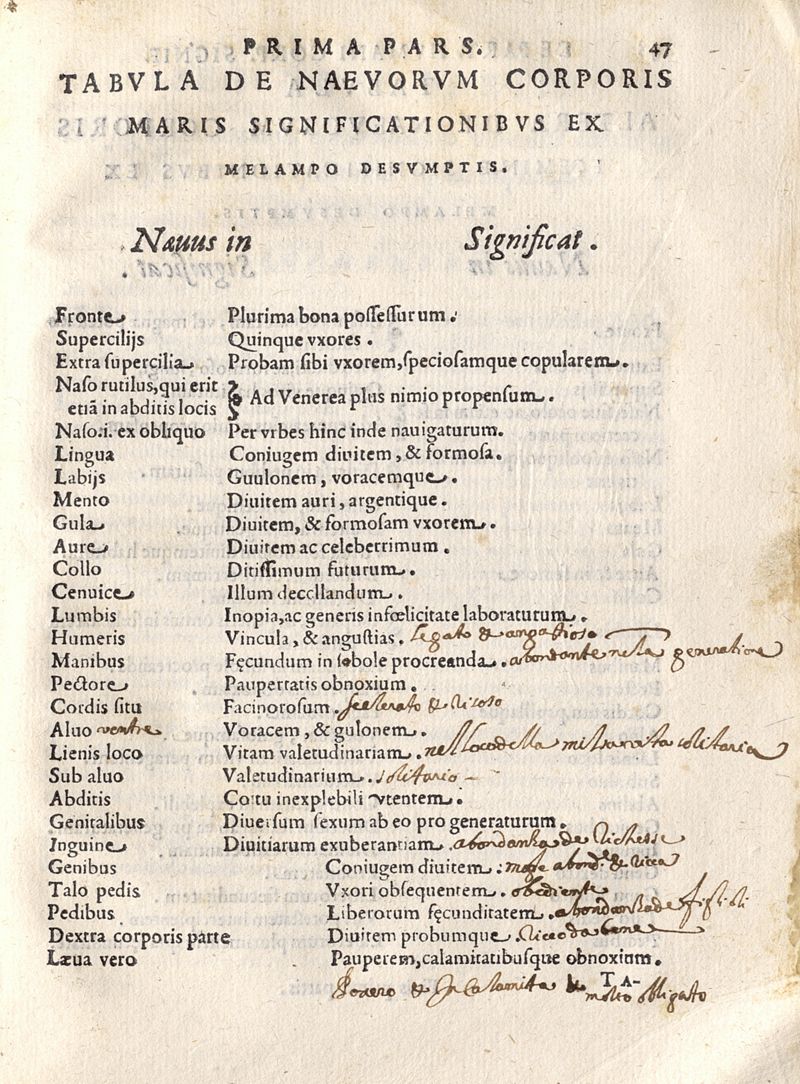 PRIMA PARS. 47
TABVLA DE NAEVORVM CORPORIS
MARIS SIGNIFICATIONIBVS EX
MELAMPO DESVMPTIS.
Næuus in Significat.
Fronte Plurima bona possessurum.
Supercilijs Quinque vxores.
Extra supercilia Probam sibi vxorem, speciosamque copularem.
Naso rutilus, qui erit
etiã in abditis locis } Ad Venerea plus nimio propensum.
Naso.i. ex obliquo Per vrbes hinc inde nauigaturum.
Lingua Coniugem diuitem, & formosa.
Labijs Guulonem, voracemque.
Mento Diuitem auri, argentique.
Gula Diuitem, & formosam vxorem.
Aure Diuitem ac celeberrimum.
Collo Ditissimum futurum.
Ceruice Illum decollandum.
Lumbis Inopia, ac generis infœlicitate laboraturum.
Humeris Vincula, & angustias. legato &
Manibus Fęcundum in sobole procreanda. abondante nela generatione
Pectore Paupertatis obnoxium.
Cordis situ Facinorosum. scelerato &
Aluo ventre Voracem, & gulonem.
Lienis loco Vitam valetudinariam. nel loco della solitaria
Sub aluo Valetudinarium. solitario
Abditis Coitu inexplebili vtentem.
Genitalibus Diuersum sexum ab eo pro generaturum.
Inguine Diuitiarum exuberantiam. abondanza de richesse
Genibus Coniugem diuitem. & ricca
Talo pedis Vxori obsequentem. obediente
Pedibus Liberorum fęcunditatem. abondanza de figlioli
Dextra corporis parte Diuitem probumque. da bene
Læua vero Pauperem, calamitatibusque obnoxium.
TA-
Povero & In Calamita molto obligato